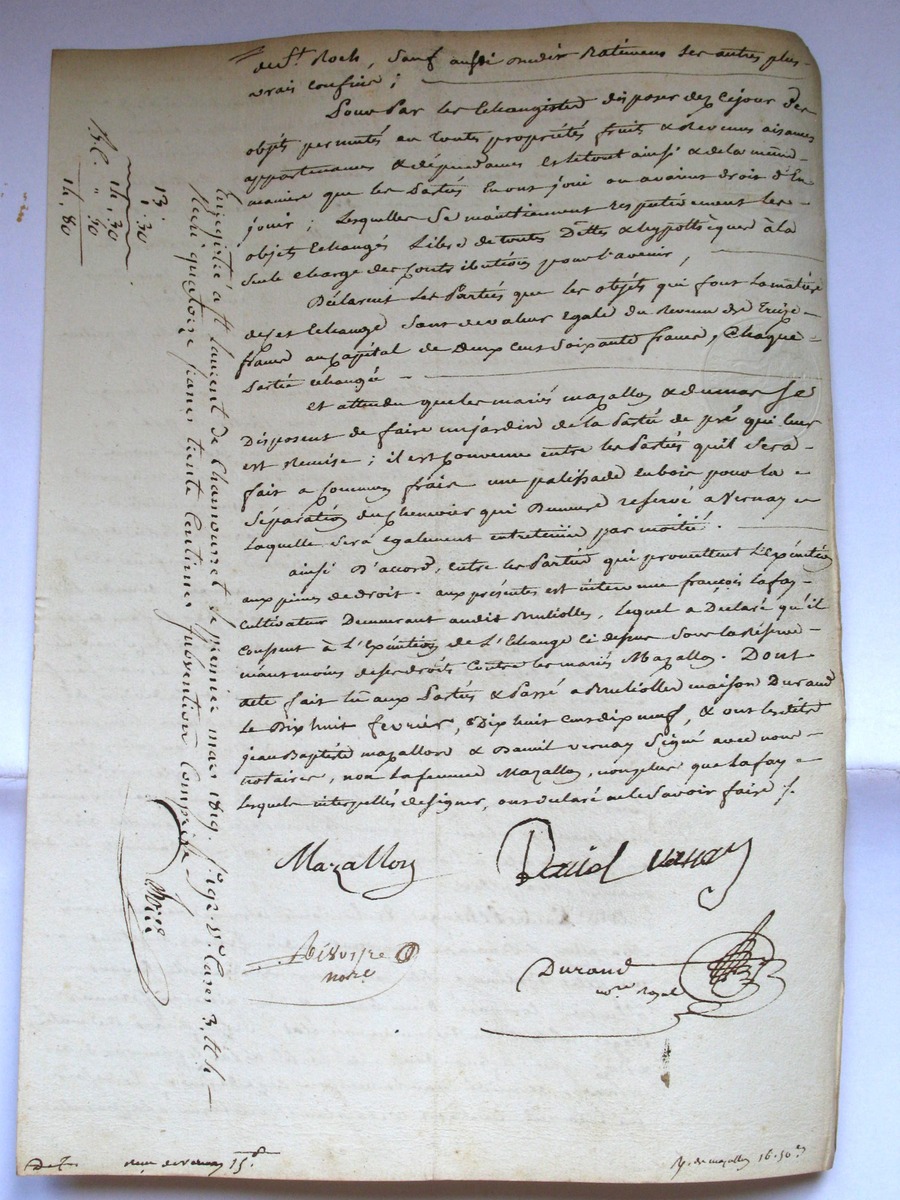 de St Roch, sauf aussi ses autres plus
vrais confins ;
Pour par les Echangistes disposer dez cejour des
objets permutés en toutes propriétés fruits & Revenus aisances
appartenances & dépendances Et letout ainsi & de la même
maniere que les Parties En ont joui ou avaient droit d'En
jouir ; Lesquelles se maintiennent respectivement les
objets Echangés Libre de toutes Dettes & hypothèques à la
Seule charge des Contributions pour l'avenir,
Déclarent les Parties que les objets qui font la matière
de cet Echange sont de valeur egale du Revenu de Treize
francs au Capital de Deux cent soixante francs, Chaque
Partie échangée
Et attendu que les mariés mazallon & dumas se
Disposent de faire un jardin de la Partie de pré qui leur
est Remise ; il est Convenu entre les Parties qu'il sera
fait a Commun frais une palissade en bois pour la
Séparation du Chenevier qui Demeure reservé a Vernay
laquelle sera également entretenue par moitié.
ainsi D'accord, entre les Parties qui promettent L'Exécution
aux peines de droit. aux présentes est intervenu françois Lafay
Cultivateur Demeurant audit Bruliolles, Lequel a Déclaré qu'il
Consent à L'Exécution de L'Echange Ci dessus Sous la Réserve
néanmoins de ses droits Contre les mariés Mazallon. Dont
acte fait lu aux Parties & Passé a Bruliolles maison Durand
le Dix huit fevrier, Dix huit cent dix neuf, & ont lesdits
jean Baptiste mazallon & Daniel Vernay Signé avec nous
notaires, non la femme Mazallon, non plus que Lafay
Lesquels interpellés de signer, ont déclaré ne le Savoir faire ./.
Mazallon
Daniel Vernay
notre
Durand
nore Royal
Enregistré à St Laurent de Chamousset le premier mars 1819. f° Ve Cases 3.
Reçu quatorze francs trente Centimes Subvention Comprise
13.
1.30
14.30
" 50
14.80
de vernay 15 f
R. de mazallon 16.50 c